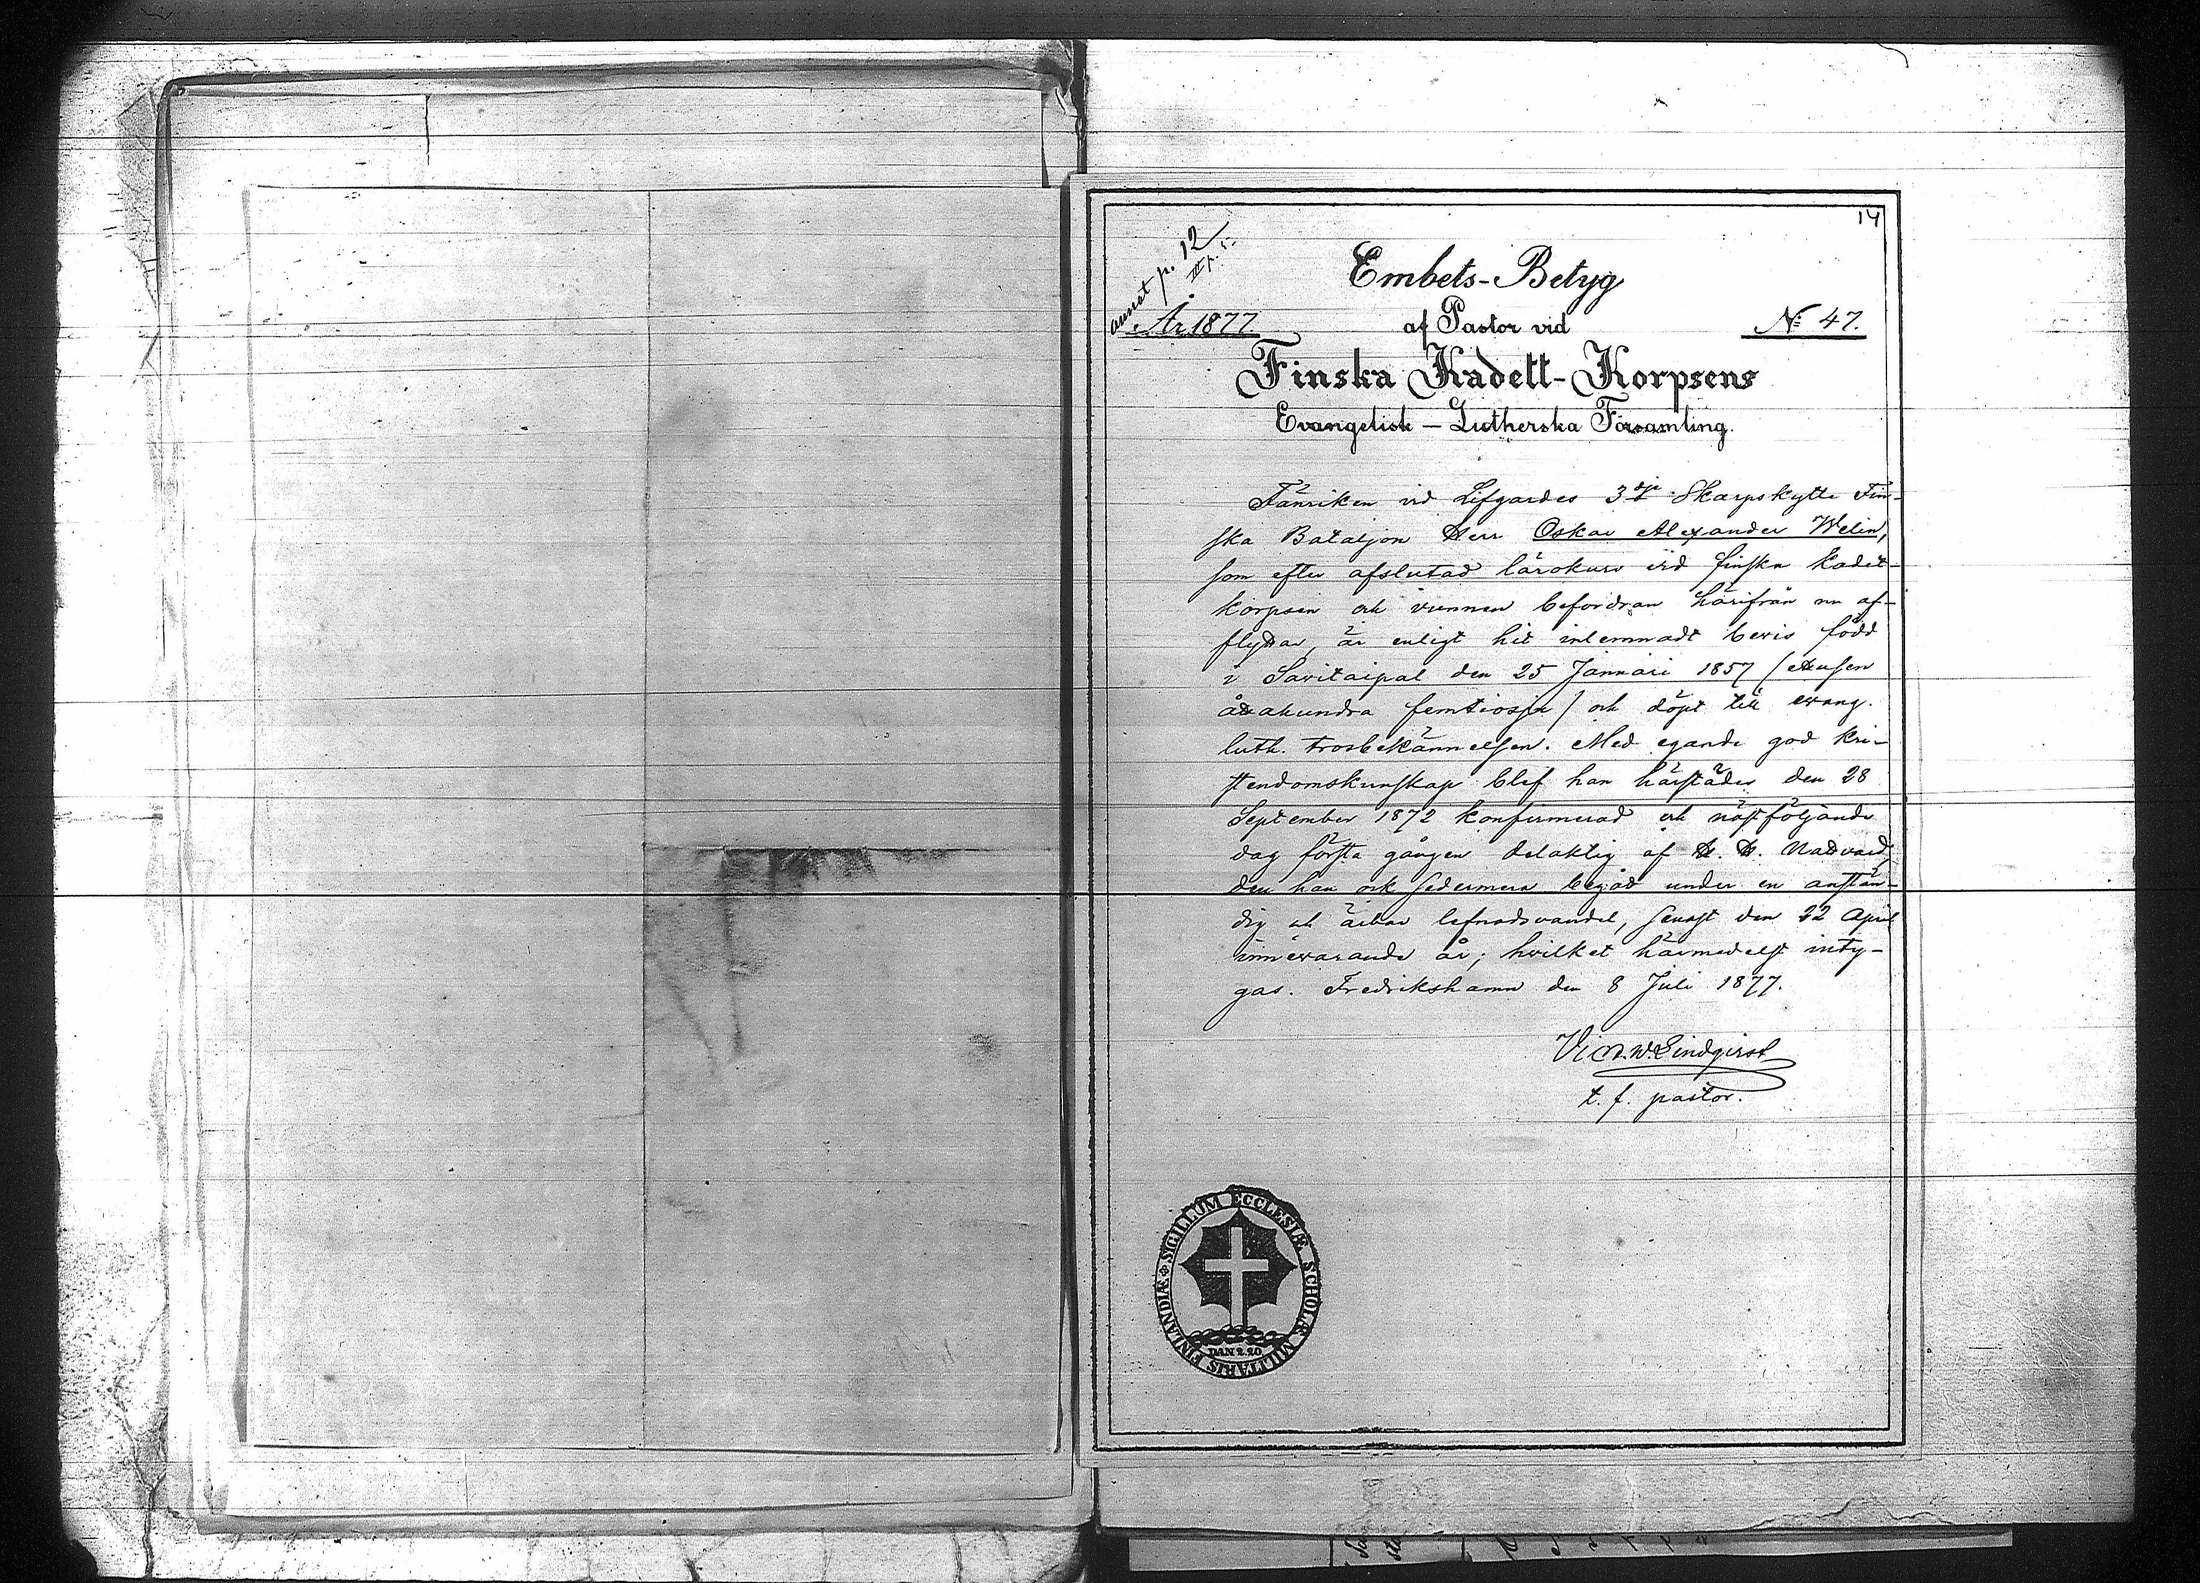 14
annot p. 12
III p. 5.
Embets-Betyg
År 1877.
af Pastor vid
No 47.
Finska Kadett-Korpsens
Evangelisk – Lutherska Församling.
Fänriken vid Lifgardes 3dje Skarpskytte Fin-
ska Bataljon Herr Oskar Alexander Welin,
som efter afslutad lärokurs vid finska kadet-
korpsen och vunnen befordran härifrån nu af-
flyttar, är enligt hit inlemnadt bevis född
i Savitaipal den 25 Januari 1857 /ettusen
åttahundra femtiosju/ och döpt till evang.
luth. trosbekännelsen. Med egande god kri-
stendomskunskap blef han härstädes den 28
September 1872 konfirmerad och nästföljande
dag första gången delaktig af H. H. Nattvard,
den han ock sedermera begått under en anstän-
dig och ärbar lefnadsvandel, senast den 22 April
innevarande år; hvilket härmedelst inty-
gas. Fredrikshamn den 8 Juli 1877.
Vict. W. Lindqvist
t. f. pastor.
SIGILLUM ECCLESIÆ SCHOLÆ MILITARIS FINLANDIÆ
DAN 2.20